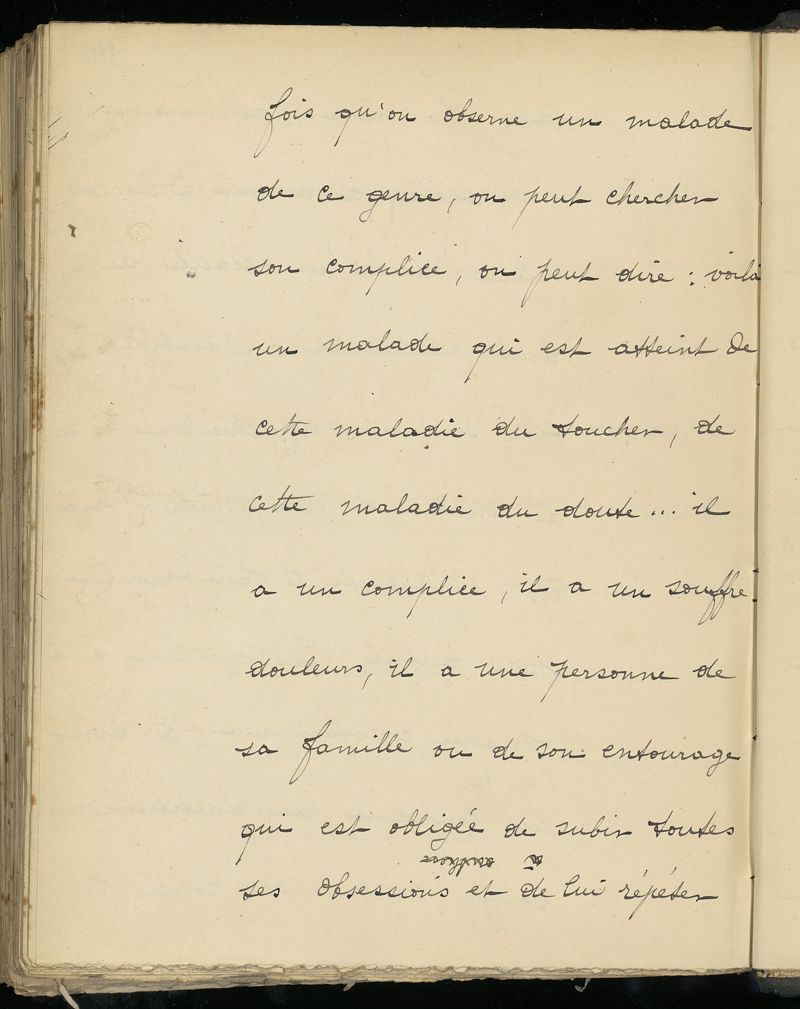 fois qu'on observe un malade
de ce genre, on peut chercher
son complice, on peut dire : voilà
un malade qui est atteint de
cette maladie du toucher, de
cette maladie du doute... il
a un complice, il a un souffre-
douleurs, il a une personne de
sa famille ou de son entourage
qui est obligée de subir toutes
à
ses obsessions et de lui répéter